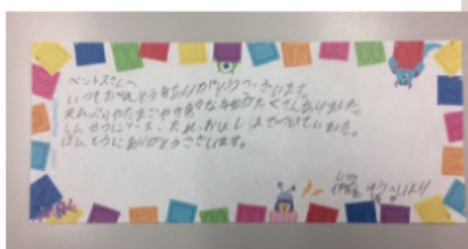 ベントスさんへ
いつもおべんとうをありがとうございます。
天ぷらやたまごやき色々なおかずがたくさんありました。
しんせつにソース、たれ、おはしまでついていました。
ほんとうにありがとうございます。
より